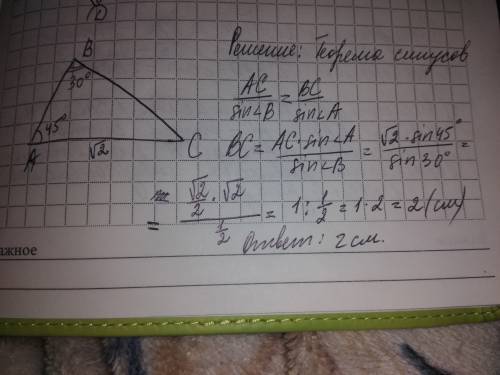 B
30°
45°
A
√2
C
Решение: Теорема синусов
AC/sin∠B = BC/sin∠A
BC = AC·sin∠A/sin∠B = √2·sin45°/sin30° =
= (√2/2·√2)/(1/2) = 1:1/2 = 1·2 = 2(см)
Ответ: 2 см.
ажное